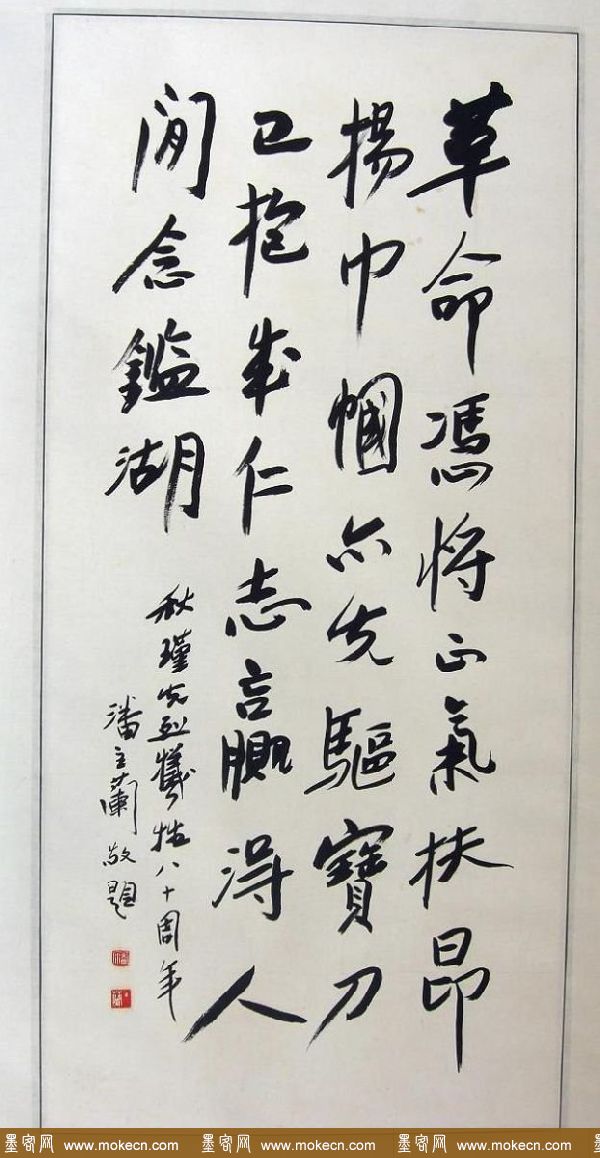 革命憑將正氣扶昂
揚巾幗亦先驅寶刀
已抱成仁志贏得人
間念鑑湖
秋瑾先烈犧牲八十周年
潘主蘭敬題
墨客网 www.mokecn.com 墨客网 www.mokecn.com 墨客网 www.mokecn.com